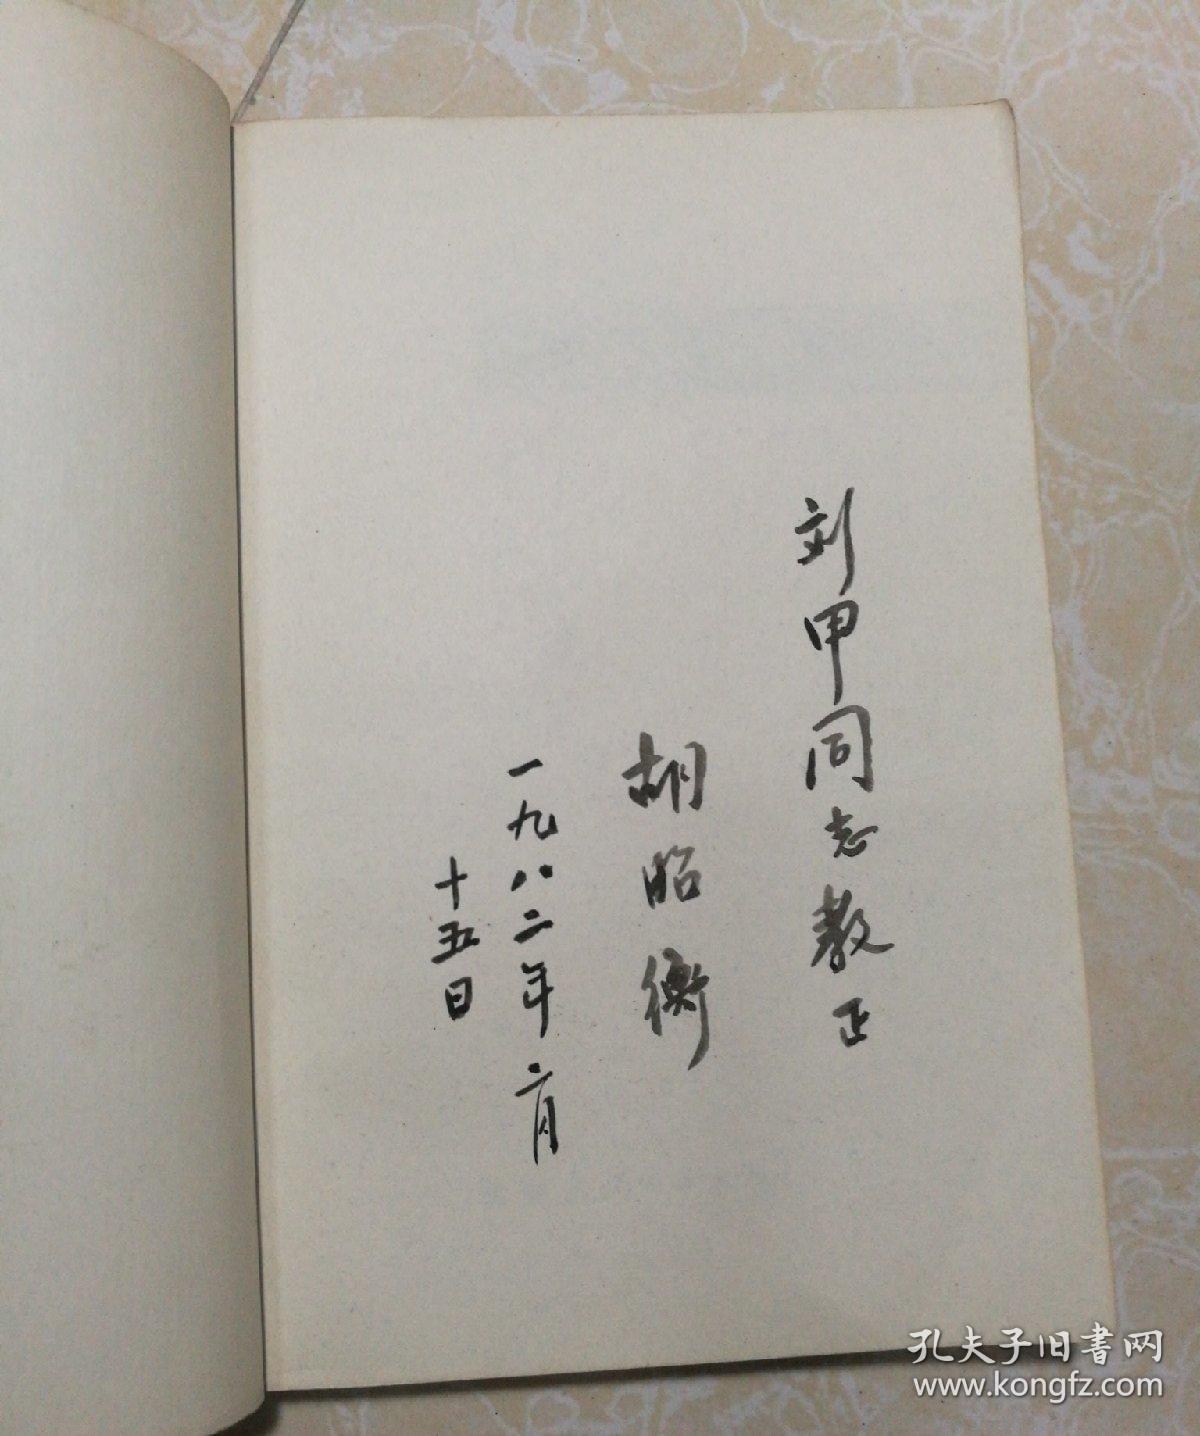 刘甲同志教正
胡昭衡
一九八二年二月
十五日
孔夫子旧书网
www.kongfz.com